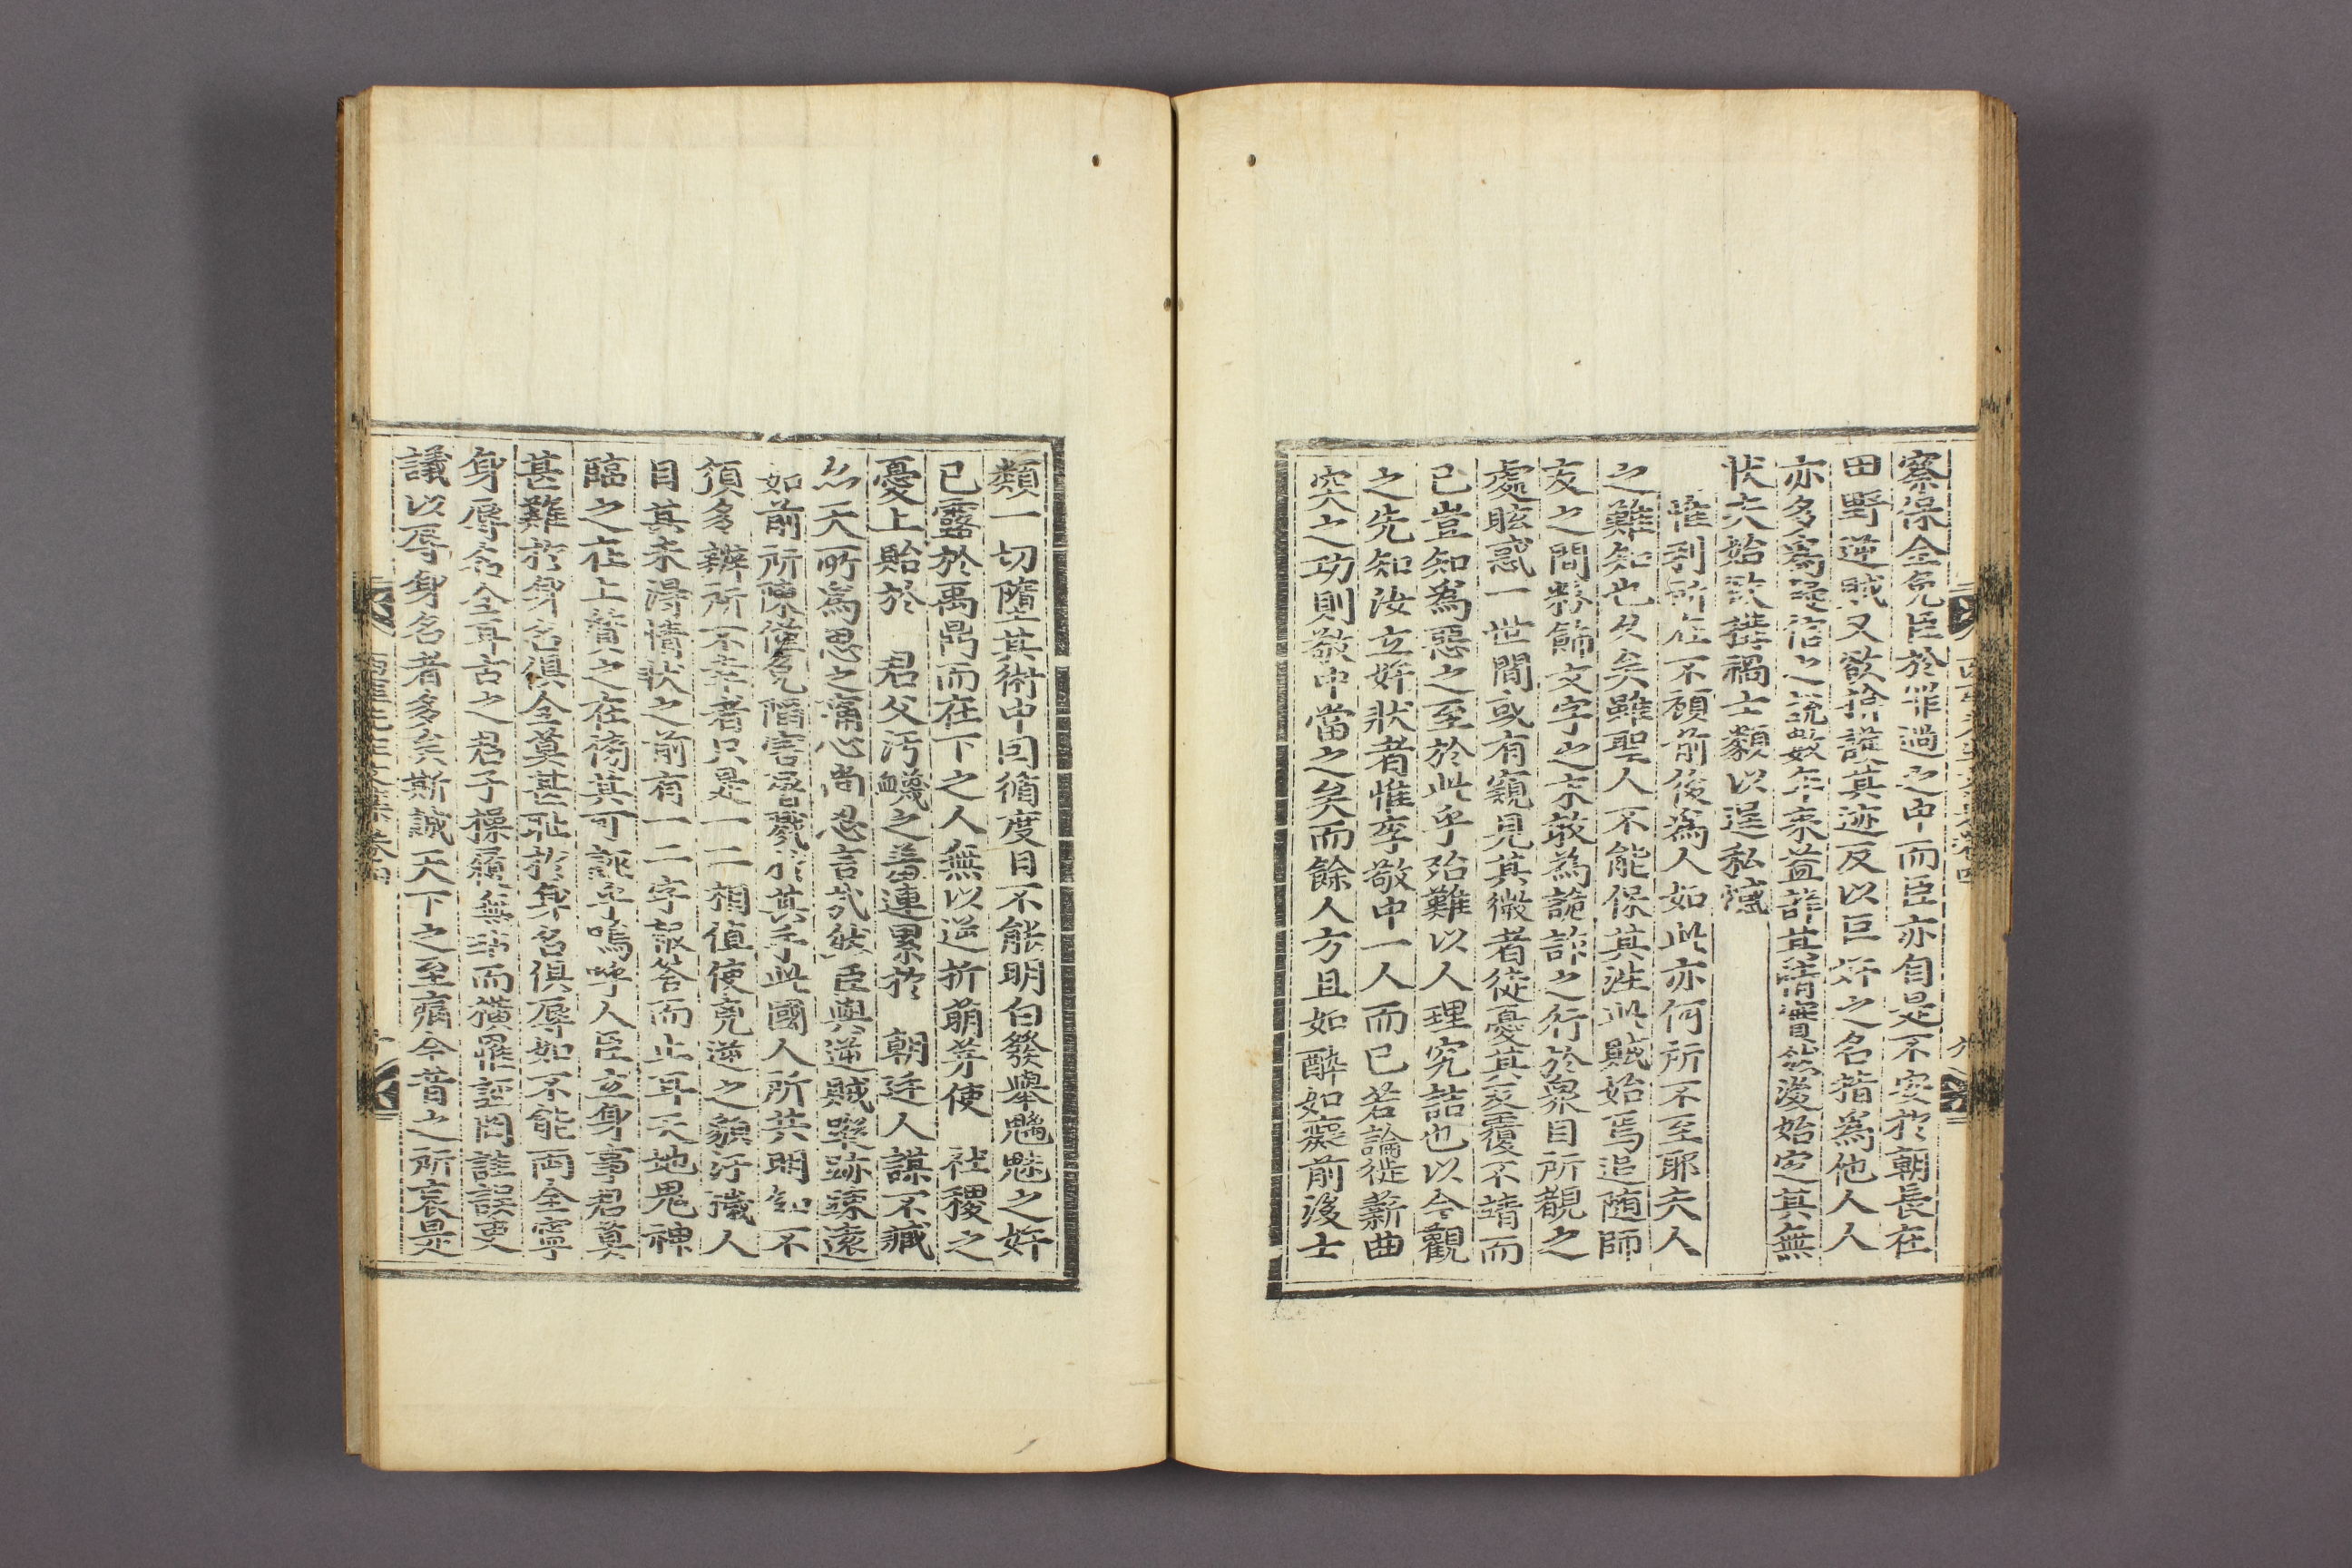 察保全免臣於罪過之中而臣亦自是不安於朝長在
田野逆賊又欲掩護其迹反以巨奸之名指爲他人人
亦多爲疑信之說數年來益詳其情實然後始定其無
狀夫始欲構禍士類以逞私憾
惟利所在不顧前後爲人如此亦何所不至耶夫人
之難知也久矣雖聖人不能保其往此賊始焉追随師
友之間粉飾文字之末敢為詭詐之行於衆目所覩之
處眩惑一世間或有窺見其微者徒憂其反覆不靖而
已豈知爲惡之至於此乎殆難以人理究詰也以今觀
之先知汝立奸狀者惟李敬中一人而已若論徙薪曲
突之功則敬中當之矣而餘人方且如醉如癡前後士
類一切墮其術中回循度日不能明白發擧魑魅之奸
已露於禹鼎而在下之人無以逆折萌芽使 社稷之
憂上貽於 君父汚衊之羞連累於 朝廷人謀不臧
繄天所爲思之痛心尙忍言哉然臣與逆賊蹤跡疎遠
如前所陳僅免陷害屠戮於其手此國人所共明知不
須多辨所不幸者只是一二相値使兇逆之貌汙衊人
目其未得情狀之前有一二字報答而止耳天地鬼神
臨之在上質之在傍其可誣乎嗚呼人臣立身事君莫
甚難於身名俱全莫甚耻於身名俱辱如不能両全寧
身辱名全耳古之君子操履無玷而橫罹誣罔詿誤吏
議以辱身名者多矣斯誠天下之至痛今昔之所哀是
西厓先生文集卷四